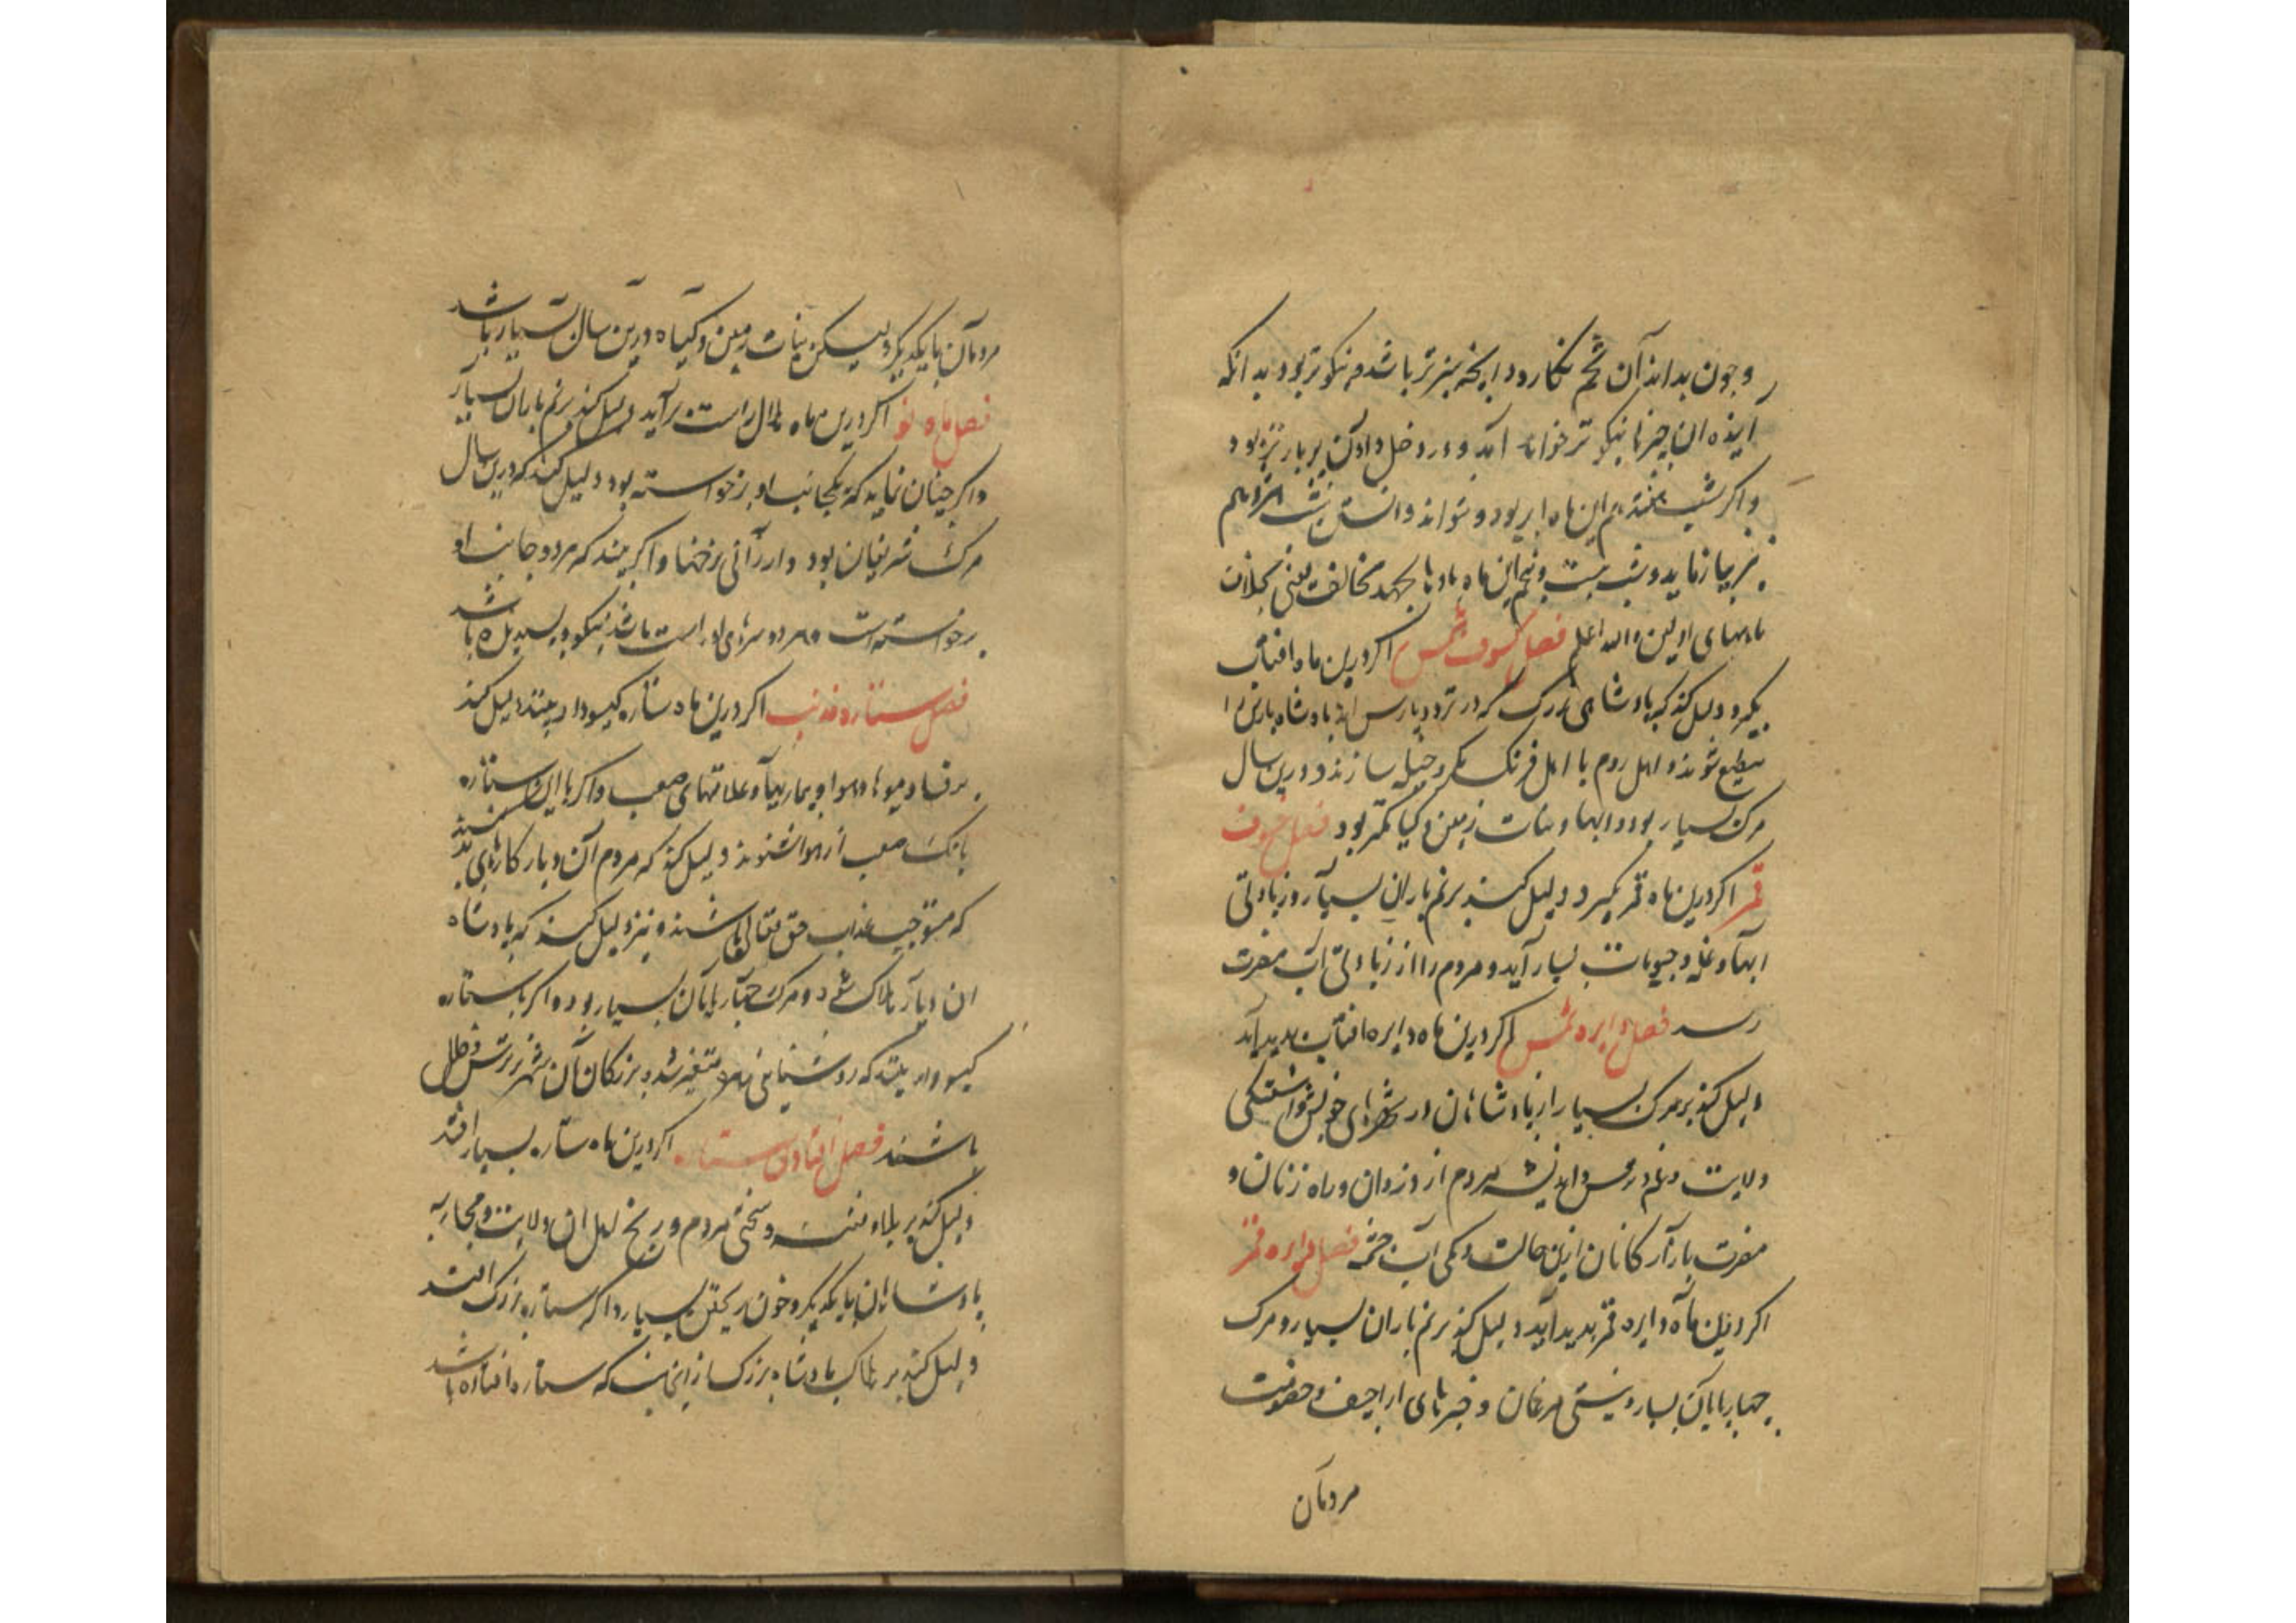 و چون بداند آن تخم بکارد و انچه سبزتر باشد و نیکوتر بود بدانکه
آینده ان چیزها نیکوتر خواهد آمد و در دخل دادن پر بارتر بود
و اگر شب هفتم این ماه ابر بود و نتواند دانستن شب
بیازماید و شب بیست و پنجم این ماه بادها بجهد مخالف یعنی بخلاف
ماههای اولین والله اعلم فصل کسوف شمس اکر درین ماه افتاب
بگیرد دلیل کند که پادشاهی بزرگ که در نزد پارس اند پادشاه پارس را
مطیع شوند و اهل روم با اهل فرنک مکر و حیله سازند و درین سال
مرک بسیار بود و ابها و نبات زمین و کیا کمتر بود فصل خسوف
قمر اکر درین ماه قمر بگیرد دلیل کند بر نم باران بسیار و زیادتی
ابها و غله و حبوبات بسیار آید و مردم را از زیادتی آب مضرت
رسد فصل دایره شمس اکر درین ماه دایره افتاب پدید آید
دلیل کند بر مرک بسیار از پادشاهان در شهرهای خویش و اشفتکی
ولایت و غم و ترس و اندیشه مردم از دزدان و راه زنان و
مضرت بازارکانان ازین حالت و کمی آب چشمه فصل دایره قمر
اکر درین ماه دایره قمر پدید آید دلیل کند بر نم باران بسیار و مرک
چهارپایان بسیار و نیستی مرغان و خبرهای اراجیف و خصومت
مردمان
مردمان با یکدیگر و لیکن نبات زمین و کیاه درین سال بسیار باشد
فصل ماه نو اکر درین ماه هلال راست برآید دلیل کند بر نم باران بسیار
و اکر چنان نماید که یکجانب او برخواسته بود دلیل کند که درین سال
مرک شریفان بود و ارزانی نرخها و اکر بیند که هر دو جانب او
برخواسته است و هر دو سرهای او راست باشد نیکو و پسندیده باشد
فصل ستاره ذوذنب اکر درین ماه ستاره کیسودار بینند دلیل کند
بر فساد میوها و هوا و بیماریها و علتهای صعب و اکر با این ستاره
بانک صعب از هوا شنوند دلیل کند که مردم آن دیار کارهای بد کنند
که مستوجب عذاب حق تعالی باشند و نیز دلیل کند که پادشاه
ان دیار هلاک شود و مرک چهارپایان بسیار بود و اکر با ستاره
کیسودار بینند که روشنایی متغیر شود بزرکان آن شهر
باشند فصل افتادن ستاره اکر درین ماه ستاره بسیار افتد
دلیل کند بر بلا و فتنه و سختی مردم و رنج اهل ان ولایت و محاربه
پادشاهان با یکدیگر و خون ریختن بسیار و اکر ستاره بزرک افتد
دلیل کند بر هلاک پادشاه بزرک از انجانب که ستاره افتاده باشد